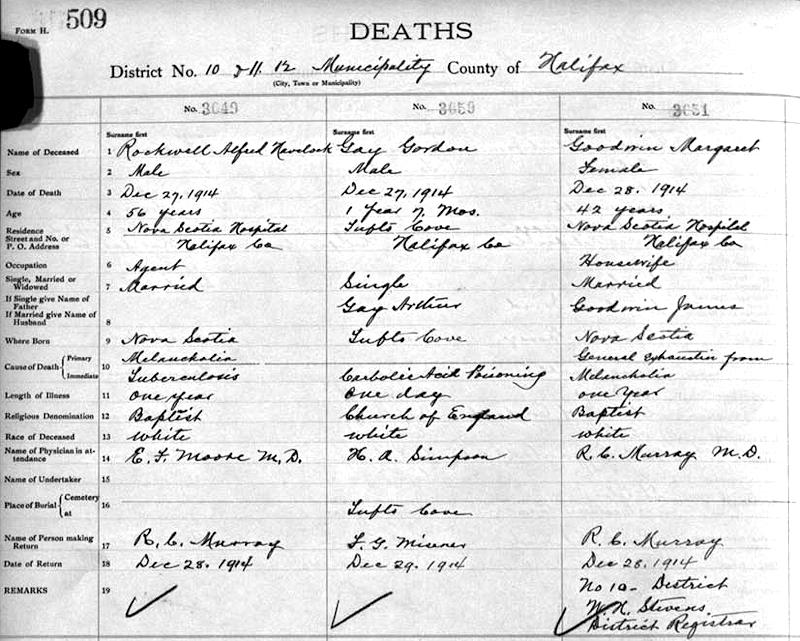 FORM H. 509
DEATHS
District No. 10 & 11. 12 Municipality County of Halifax
(City, Town or Municipality)
No. 3649 No. 3650 No. 3651
Surname first Surname first Surname first
Name of Deceased 1 Rockwell Alfred Havelock Gay Gordon Goodwin Margaret
Sex 2 Male Male Female
Date of Death 3 Dec 27, 1914 Dec 27, 1914 Dec 28. 1914
Age 4 56 years 1 Year 7 Mos. 42 years
Residence 5 Nova Scotia Hospital Tufts Cove Nova Scotia Hospital
Street and No. or
P. O. Address Halifax Co Halifax Co Halifax Co
Occupation 6 Agent Housewife
Single, Married or
Widowed 7 Married Single Married
If Single give Name of
Father Gay Arthur Goodwin James
If Married give Name of
Husband 8
Where Born 9 Nova Scotia Tufts Cove Nova Scotia
Cause of Death { Primary 10 Melancholia General Exhaustion from
Immediate Tuberculosis Carbolic Acid Poisoning Melancholia
Length of Illness 11 One year One day one year
Religious Denomination 12 Baptist Church of England Baptist
Race of Deceased 13 White White White
Name of Physician in at-
tendance 14 E. F. Moore M.D. H. A. Simpson R. C. Murray M.D.
Name of Undertaker 15
Place of Burial { Cemetery 16
at Tufts Cove
Name of Person making
Return 17 R. C. Murray F. G. Misener R. C. Murray
Date of Return 18 Dec 28. 1914 Dec 29. 1914 Dec 28. 1914
REMARKS 19 No 10- District
W. N. Stevens
District Registrar